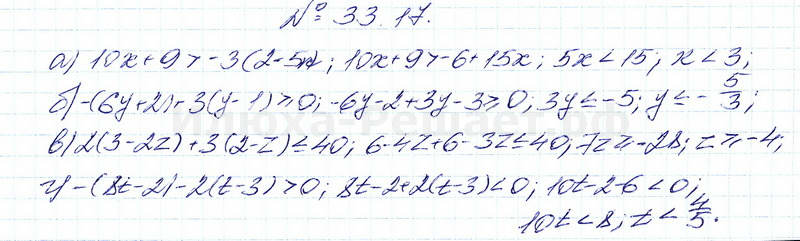 № 33.17.
а) 10x+9>-3(2-5x); 10x+9>-6+15x; 5x<15; x<3;
б) -(6y+2)+3(y-1)≥0; -6y-2+3y-3≥0; 3y≤-5; y≤-5/3;
в) 2(3-2z)+3(2-z)≤40; 6-4z+6-3z≤40; 7z≥-28; z≥-4;
г) -(8t-2)-2(t-3)>0; 8t-2+2(t-3)<0; 10t-2-6<0;
10t<8; t<4/5.
Илюха-Решает.рф